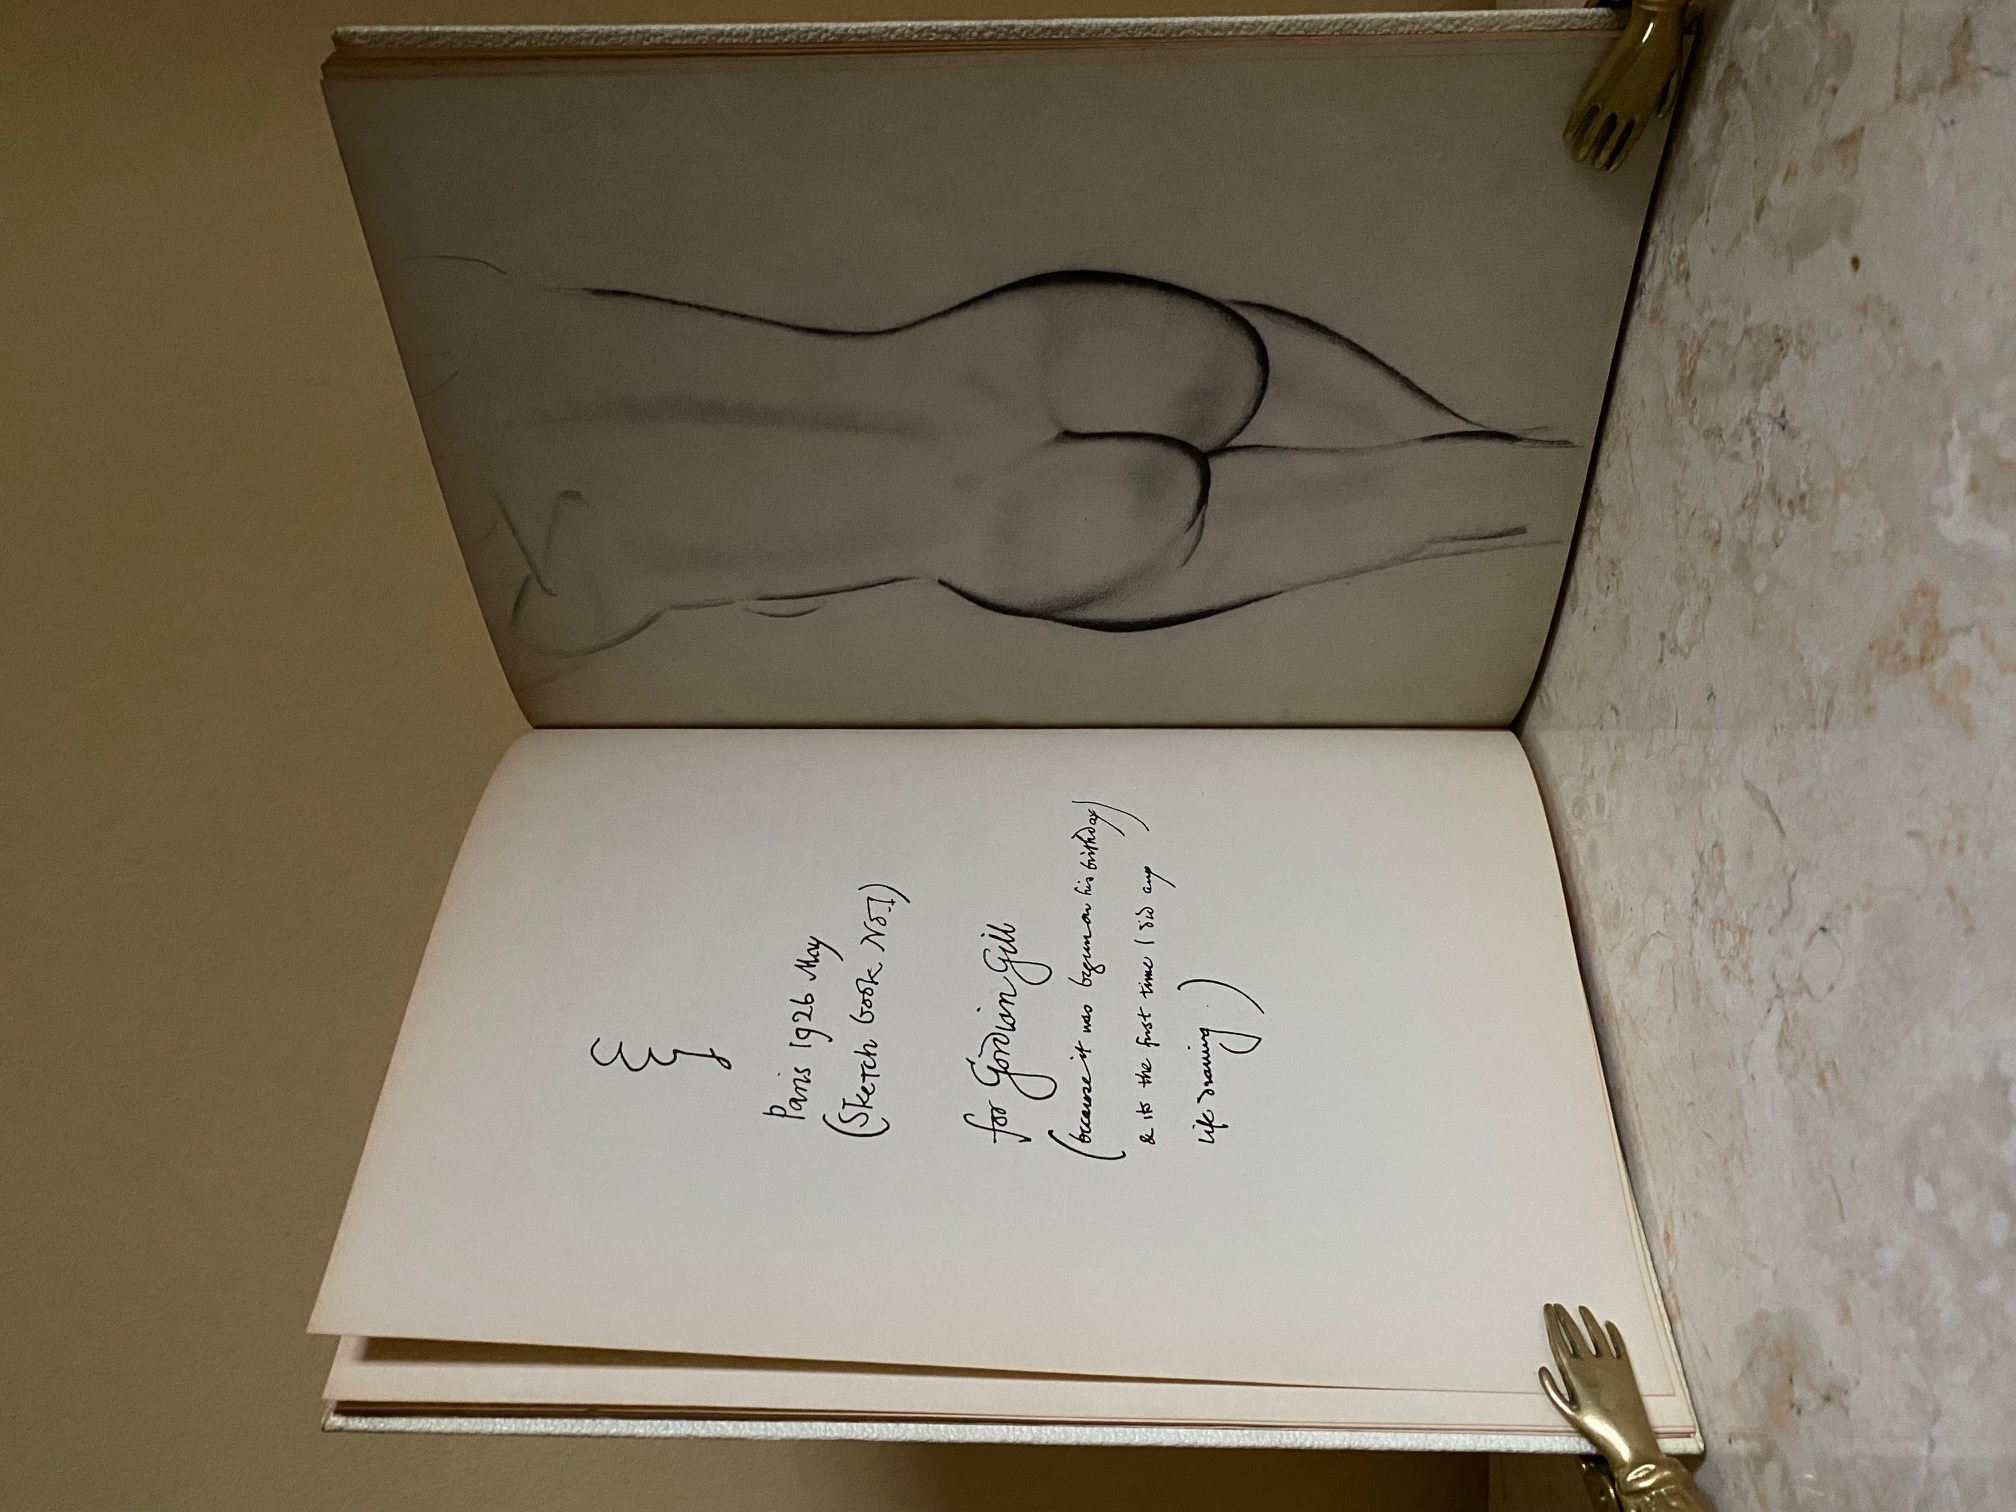 Paris 1926 May
(Sketch book No.1)
for Gordian Gill
(because it was begun on his birthday)
& its the first time I did any
life drawing.)